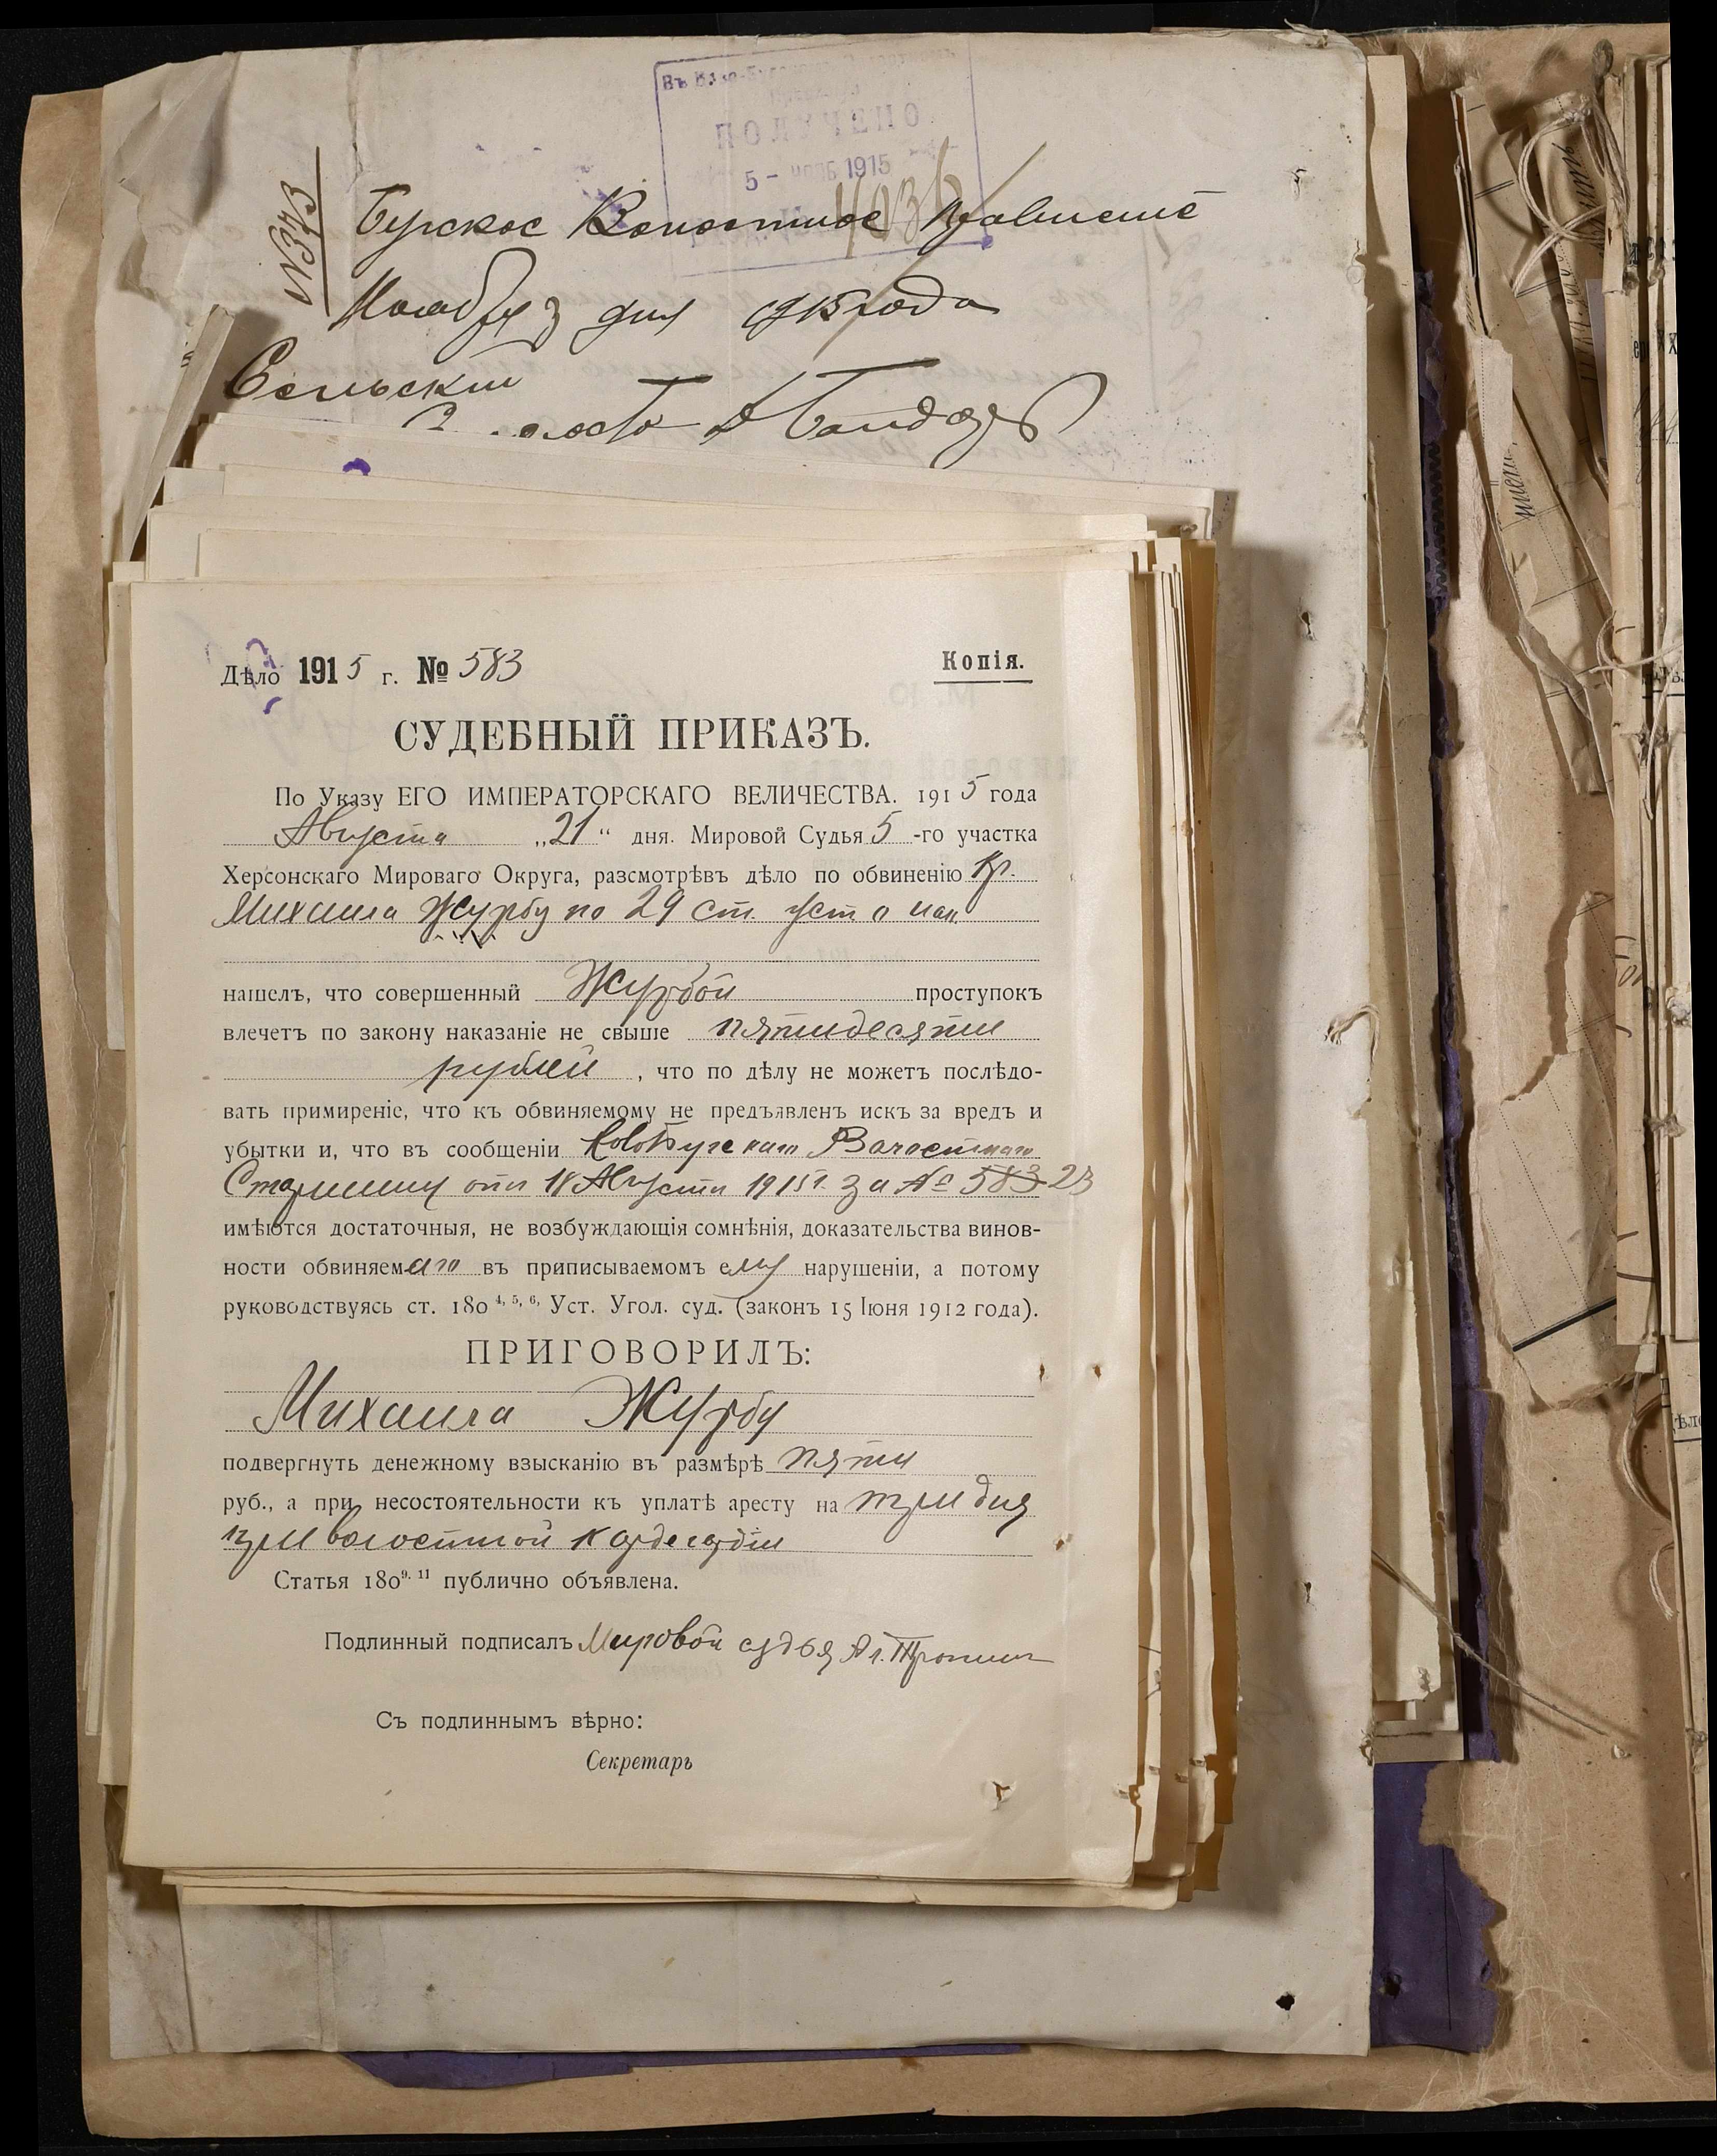 Въ
ПОЛУЧЕНО
5 - НОЯБ 1915
№ 373
Бугское Волостное Правленіе
Ноября 3 дня 1915 года
Сельскій
Дѣло 1915 г. № 583
Копія.
СУДЕБНЫЙ ПРИКАЗЪ.
По Указу ЕГО ИМПЕРАТОРСКАГО ВЕЛИЧЕСТВА. 1915 года
Августа „21“ дня. Мировой Судья 5-го участка
Херсонскаго Мироваго Округа, разсмотрѣвъ дѣло по обвиненію кр.
Михаила Журбу по 29 ст. уст о нак
нашелъ, что совершенный Журбой проступокъ
влечетъ по закону наказаніе не свыше пятидесяти
рублей, что по дѣлу не можетъ послѣдо-
вать примиреніе, что къ обвиняемому не предъявленъ искъ за вредъ и
убытки и, что въ сообщеніи Новобугскаго Волостного
Старшины отъ 18 Августа 1915 г. за № 583 23
имѣются достаточныя, не возбуждающія сомнѣнія, доказательства винов-
ности обвиняемаго въ приписываемомъ ему нарушеніи, а потому
руководствуясь ст. 180 4, 5, 6, Уст. Угол. суд. (законъ 15 Іюня 1912 года).
ПРИГОВОРИЛЪ:
Михаила Журбу
подвергнуть денежному взысканію въ размѣрѣ пяти
руб., а при несостоятельности къ уплатѣ аресту на три дня
при волостной кордегардіи
Статья 180 9. 11 публично объявлена.
Подлинный подписалъ Мировой судья Ал.
Съ подлиннымъ вѣрно:
Секретарь